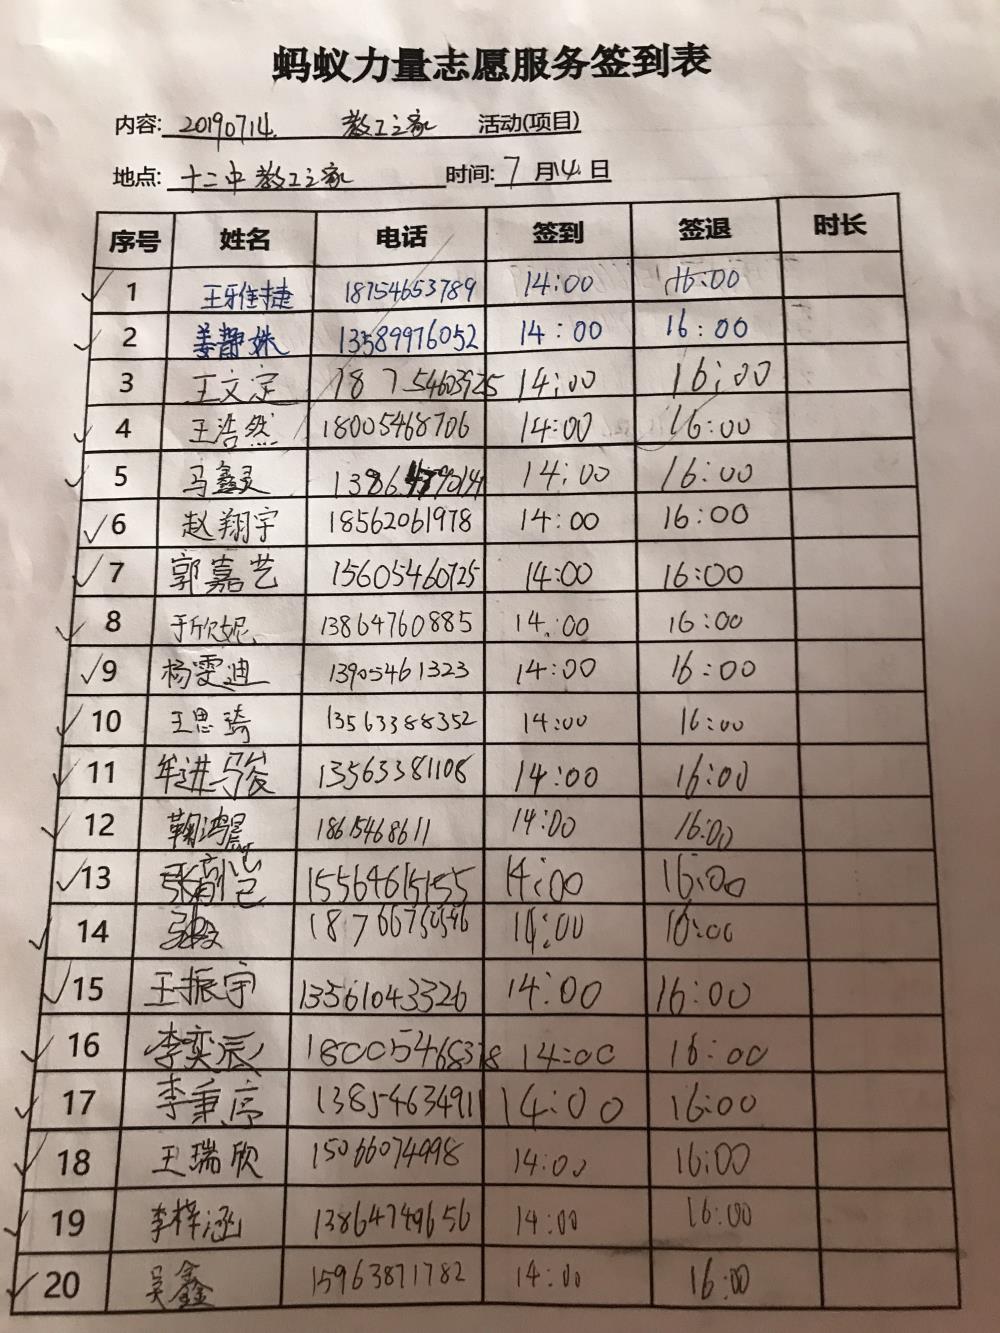 蚂蚁力量志愿服务签到表
内容: 20190714. 教工之家 活动(项目)
地点: 十二中教工之家 时间: 7月14日
序号 姓名 电话 签到 签退 时长
1 王雅捷 18754653789 14:00 16:00
2 姜静姝 13589976052 14:00 16:00
3 王文定 18754603925 14:00 16:00
4 王浩然 18005468706 14:00 16:00
5 马鑫灵 14:00 16:00
6 赵翔宇 18562061978 14:00 16:00
7 郭嘉艺 15605460725 14:00 16:00
8 于欣妮 13864760885 14:00 16:00
9 杨雯迪 13905461323 14:00 16:00
10 王思琦 13563388352 14:00 16:00
11 牟进马俊 13563381108 14:00 16:00
12 鞠鸿晨 18615468611 14:00 16:00
13 15564615155 14:00 16:00
14 14:00 16:00
15 王振宇 13561043326 14:00 16:00
16 李奕辰 18005468378 14:00 16:00
17 李秉亭 13854634911 14:00 16:00
18 王瑞欣 15066074998 14:00 16:00
19 李梓涵 13864749656 14:00 16:00
20 吴鑫 15963871782 14:00 16:00